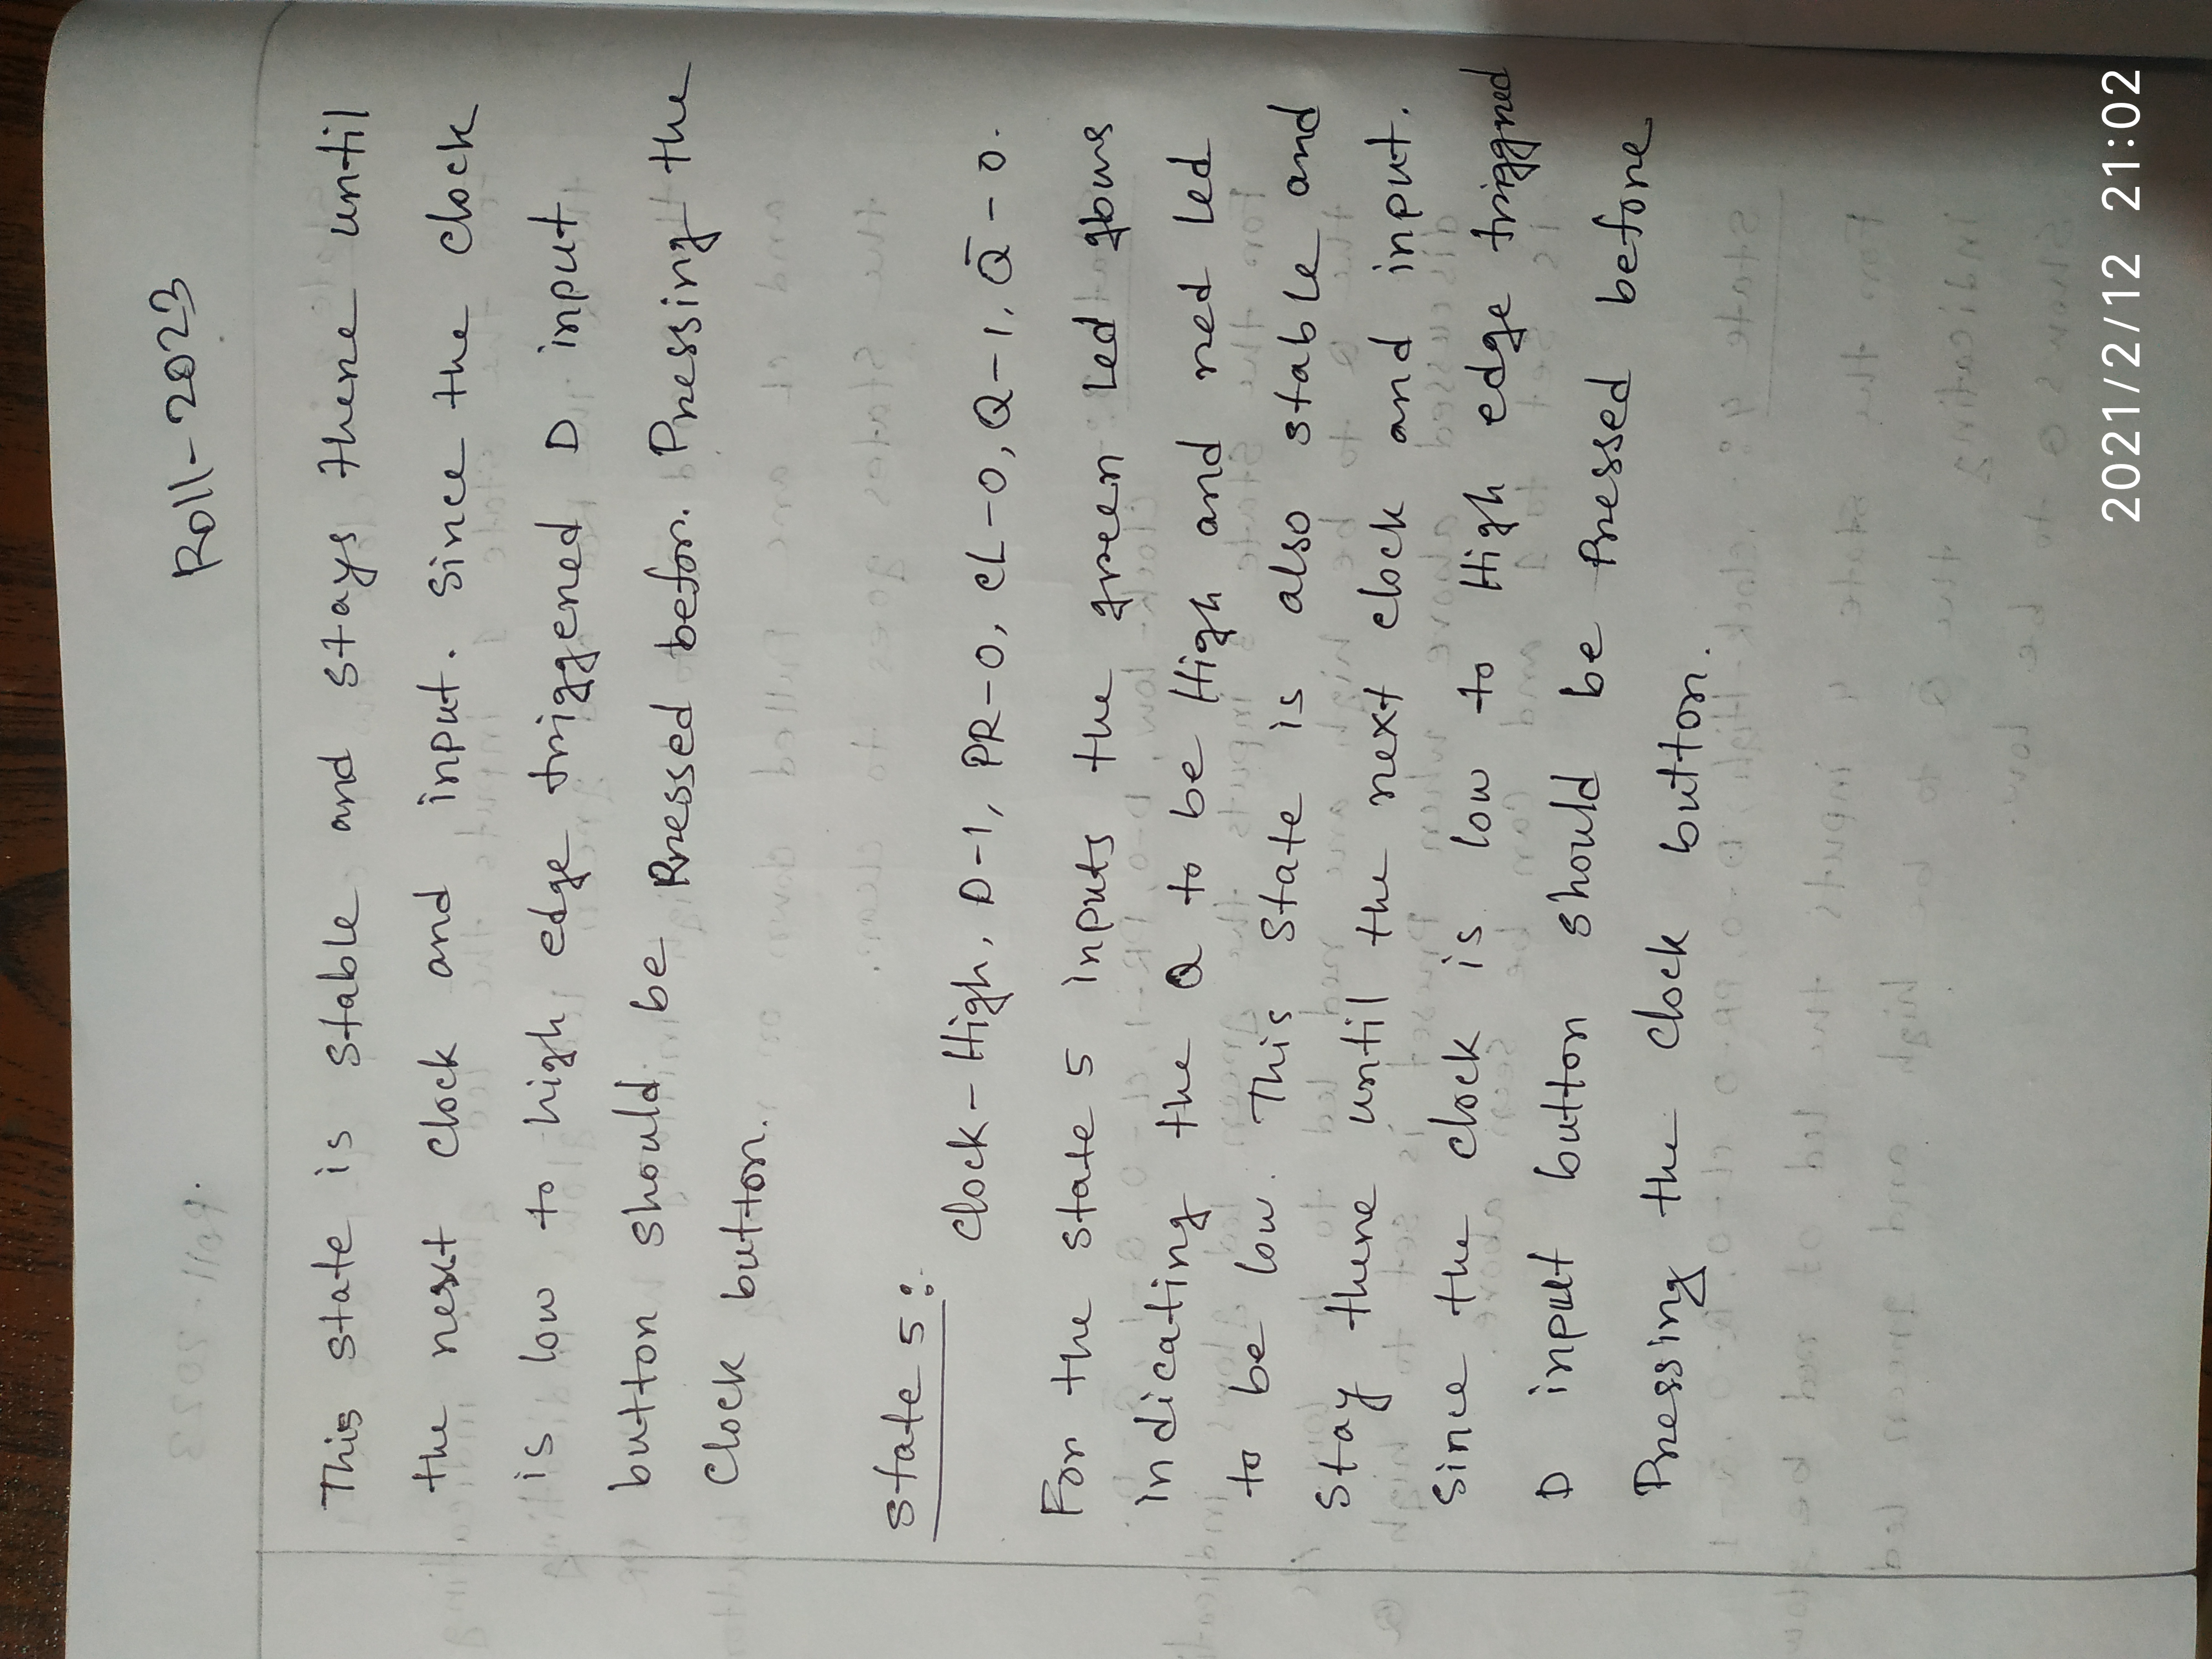 Roll-2023
This state is stable and stays there until
the next clock and input. Since the clock
is low to high edge triggered D input
button should be Pressed befor. Pressing the
Clock button.
State 5:
Clock-High, D-1, PR-0, CL-0, Q-1, Q̄-0.
For the state 5 inputs the green Led glows
indicating the Q to be High and red Led
to be low. This State is also stable and
Stay there until the next clock and input.
Since the clock is low to High edge triggred
D input button should be Pressed before
Pressing the Clock button.
2021/2/12 21:02